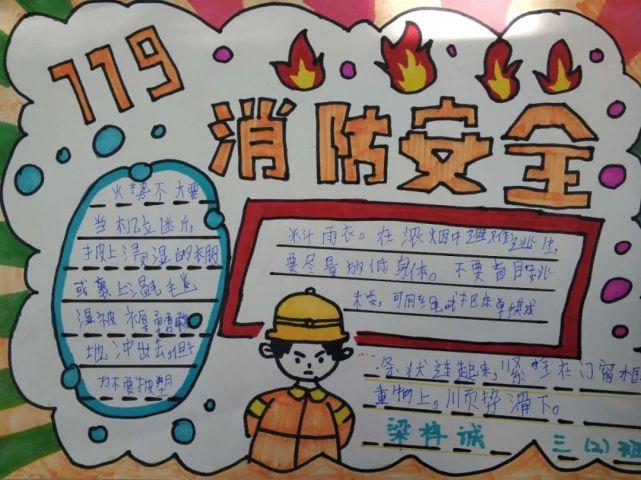 119
消防安全
火势不大要
当机立断，
披上浸湿的衣服
或裹上湿毛毯
湿被褥勇敢
地冲出去，但千
万不要披塑
料雨衣。在浓烟中避难逃生，
要尽量的低身体。不要盲目跳
条状连起来，紧拴在门窗框
重物上。顺势滑下。
三(2)班